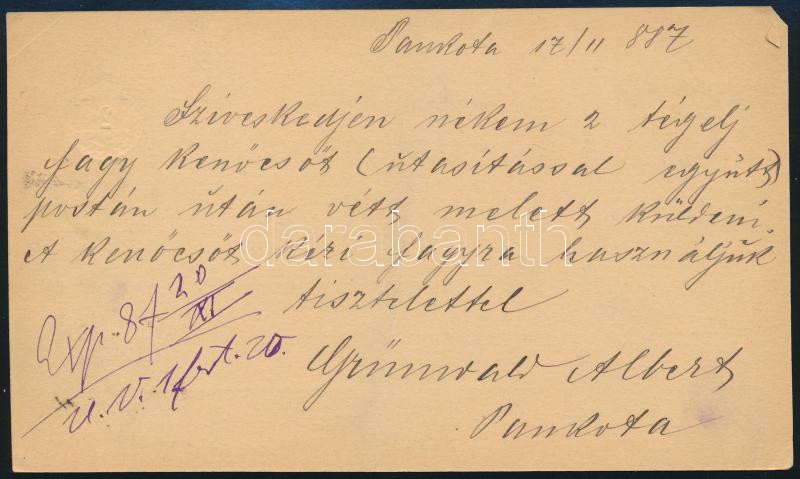 Pankota 17/11 887
Sziveskedjen nékem 2 tégelj
fagy kenöcsöt (utasitással együtt)
postán után vétt melett küldeni.
A kenöcsöt kézi fagyra használjuk
tisztelettel
Grünwald Albert
Pankota
Exp. 87 20/XI
u. v. 1 frt. 20.
darabanth